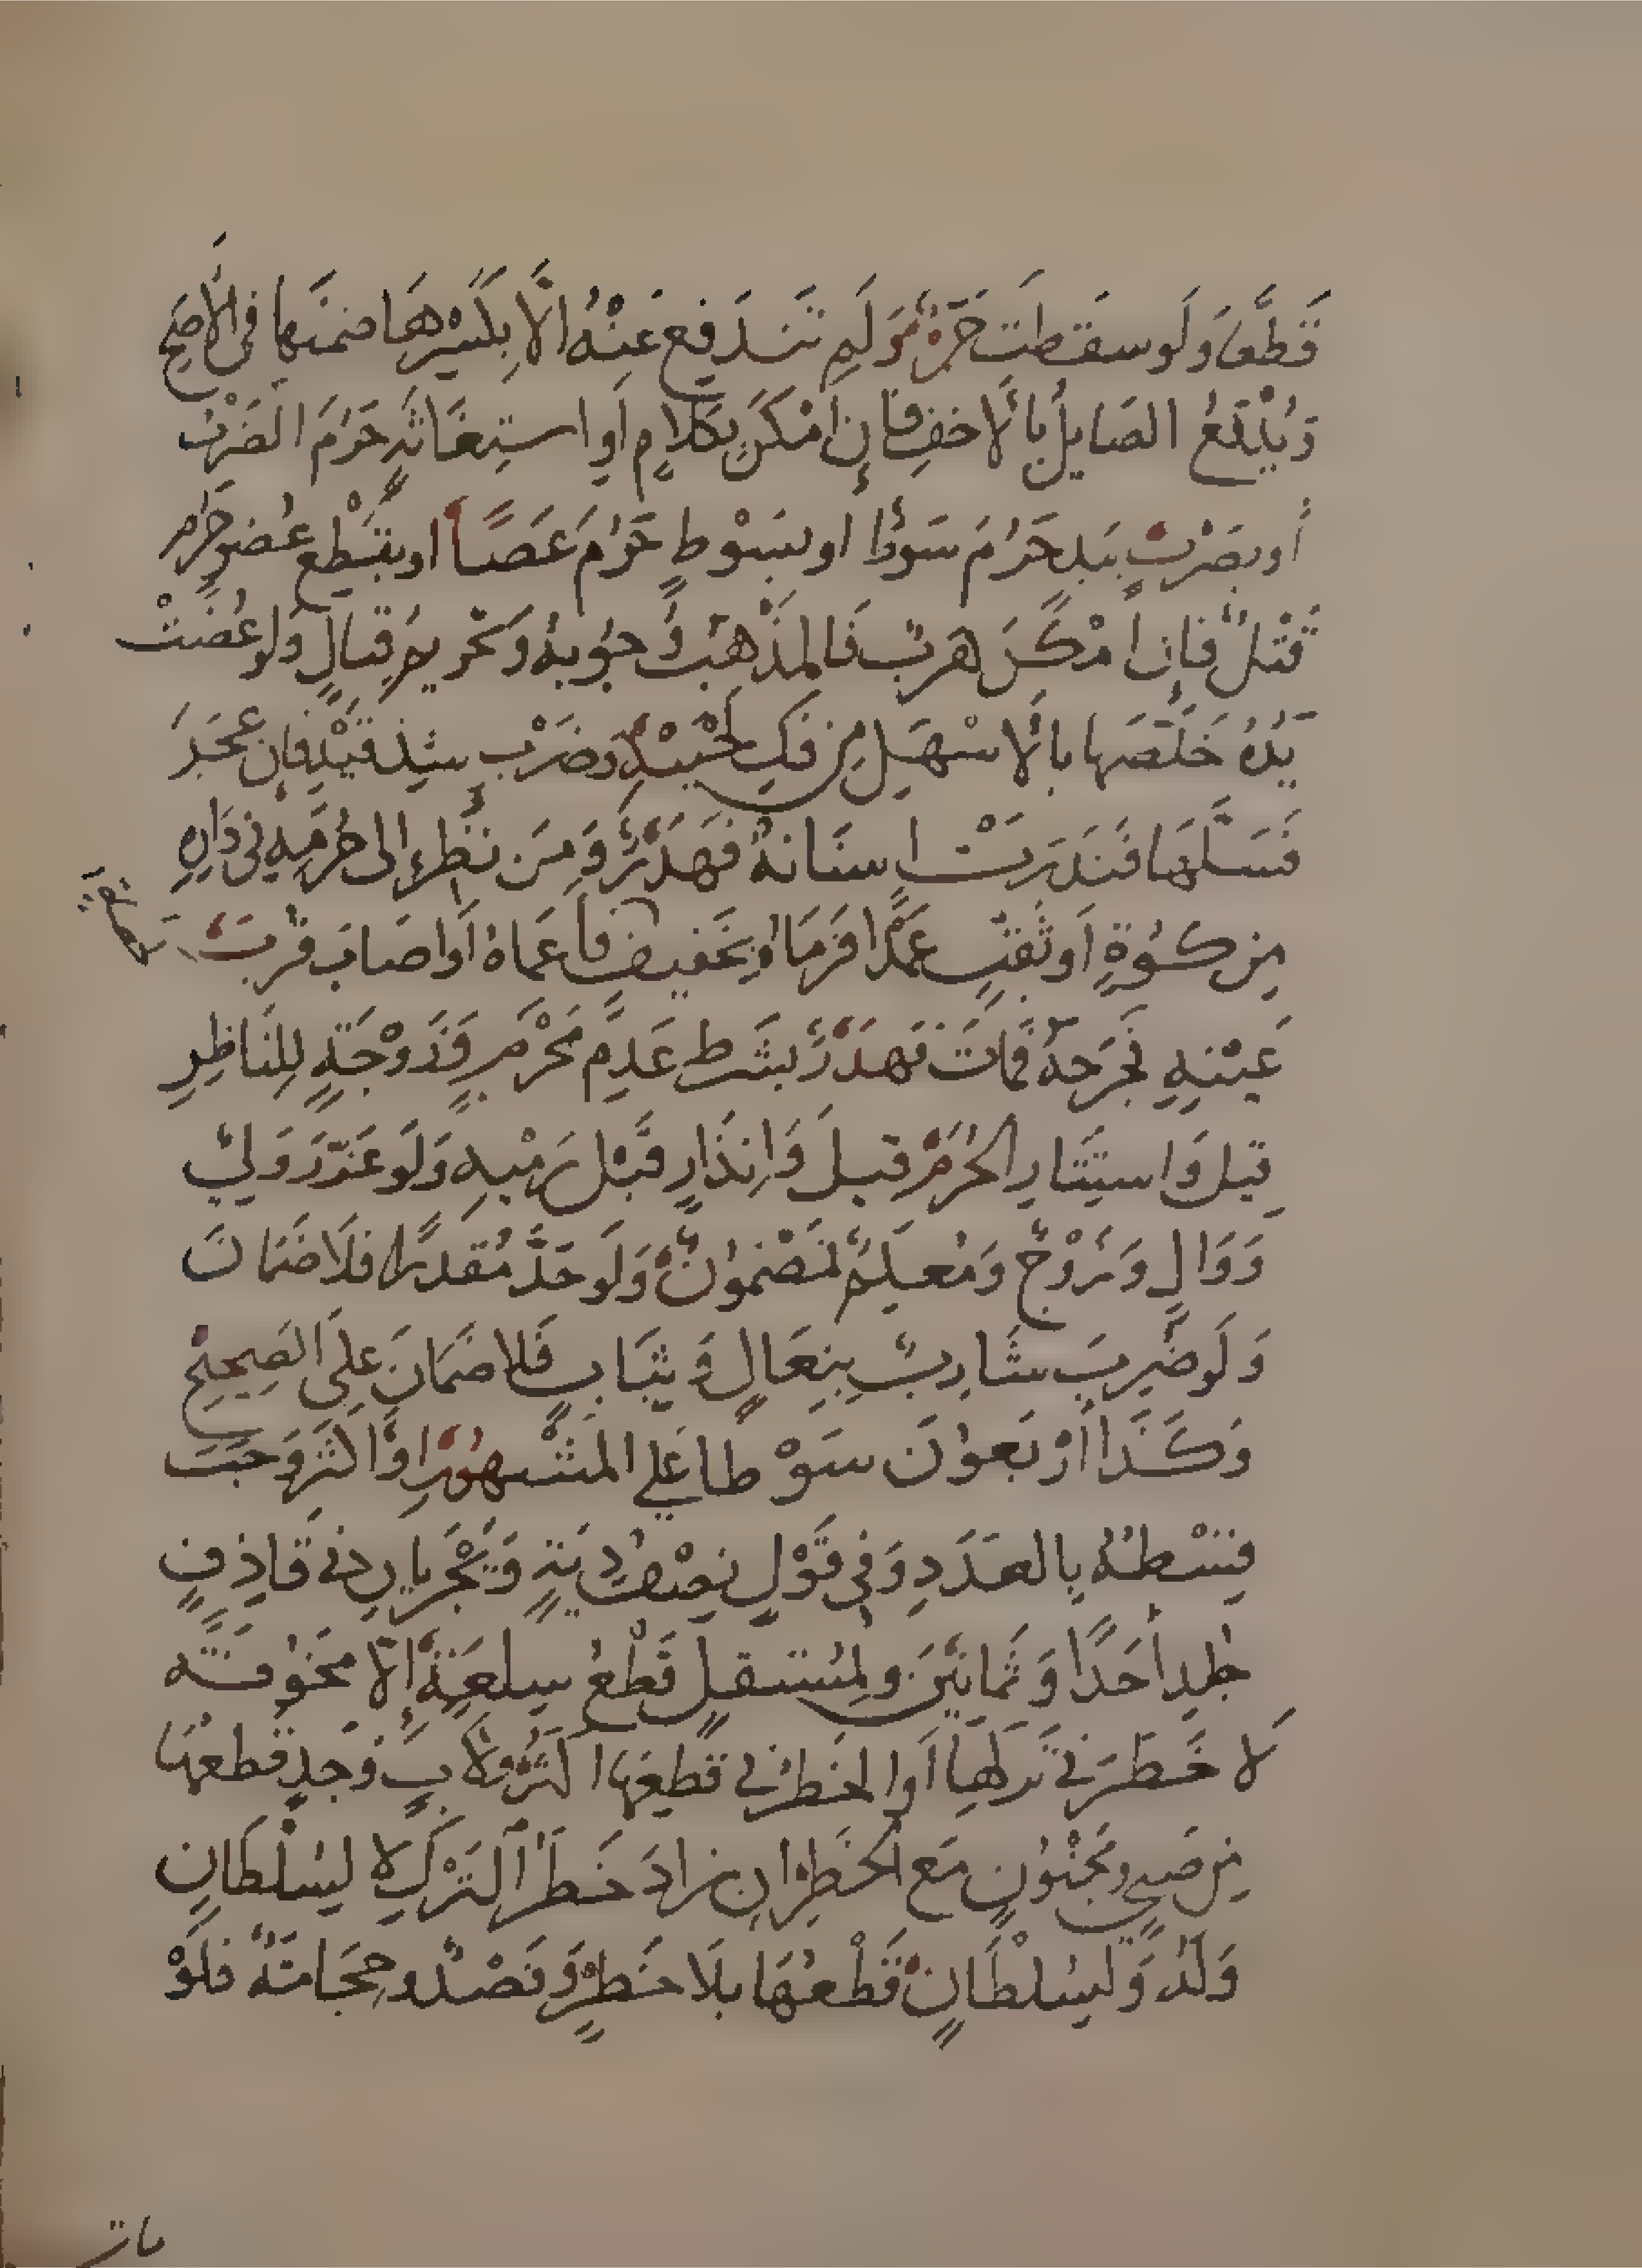 قَطَّعَهَا وَلَو سقَطَت جَرَّةٌ وَلَم تَنْدَفِع عَنْهُ الَّا بِكَسْرِهَا ضمنَها في الاصَحِّ
وَيُدْفَعُ الصَايِلُ بِالاخفِ فَاِن امْكَنَ بِكَلامٍ اَو استِغَاثَةٍ حَرُمَ الضَرْبُ
أو بِضَرْبٍ بيَدٍ حَرُمَ سَوطٌ او بِسَوْطٍ حَرُمَ عَصًا او بقَطعِ عُضوٍ حَرُم
قَتْلٌ فَاِن أمْكَنَ هَرَبٌ فَالمذْهَبُ وُجُوبهُ وَتحْريمُ قِتَالٍ وَلو عُضَّتْ
يَدُهُ خَلَّصَها بالاسْهَلِ مِن فَكِ لَحْيَيْهِ وَضَرْبِ شِدْقَيْهِ فان عجَزَ
فَسَلَّهَا فَنَدَرَتْ اسنَانهُ فَهَدَرٌ وَمَن نُظِرَ إلى حُرَمِهِ فى دَارِهِ
مِن كُوَّةٍ اَو ثَقْبٍ عَمْدًا فَرَمَاهُ بخَفيفٍ فأعمَاهُ اَو اصَابَ قُرْبَ
عَيْنِهِ فجَرَحهُ فمَاتَ فَهَدَرٌ بشَرط عَدَمِ مَحْرَمٍ وَزَوْجَةٍ لِلنَاظِرِ
قيل وَاستِتَارِ الحُرَمِ قيلَ وَاِنذَارٍ قَبْل رَمْيِهِ وَلَو عَزّرَ وَليٌّ
وَوَالٍ وَزَوْجٌ وَمُعَلِّمٌ فمَضْمُونٌ وَلَو حَدَّ مُقَدَّرًا فلَا ضَمَانَ
وَلَو ضُرِبَ شَارِبٌ بنِعَالٍ وَثِيَابٍ فَلا ضَمَانَ علَى الصَحِيحِ
وَكَذَا أرْبَعُونَ سَوْطا عَلي المَشْهُورِ أوْ اكثَرَ وَجَبَ
قِسْطُهُ بِالعَدَدِ وَفي قَوْلٍ نِصْفُ دِيَةٍ وَيَجْريانِ في قَاذِفٍ
جُلِدَ أحَدًا وَثَمَانينَ وَلمُستقِلٍّ قَطْعُ سِلعَةٍ إلّا مَخُوفَةً
لا خَطَرَ في تَركِهَا اَو الخَطَرُ في قَطعِهَا اكثَرُ وَلابٍ وَجَدٍ قَطعُهَا
مِن صَبيٍّ ومَجْنُونٍ مَع الخَطَرِ ان زادَ خَطَرُ التَرْكِ لا لِسُلْطَانٍ
وَلَهُ وَلِسُلْطَانٍ قَطْعُهَا بلَا خَطَرٍ وَفَصْدٌ وَحِجَامَةٌ فلَوْ
مات